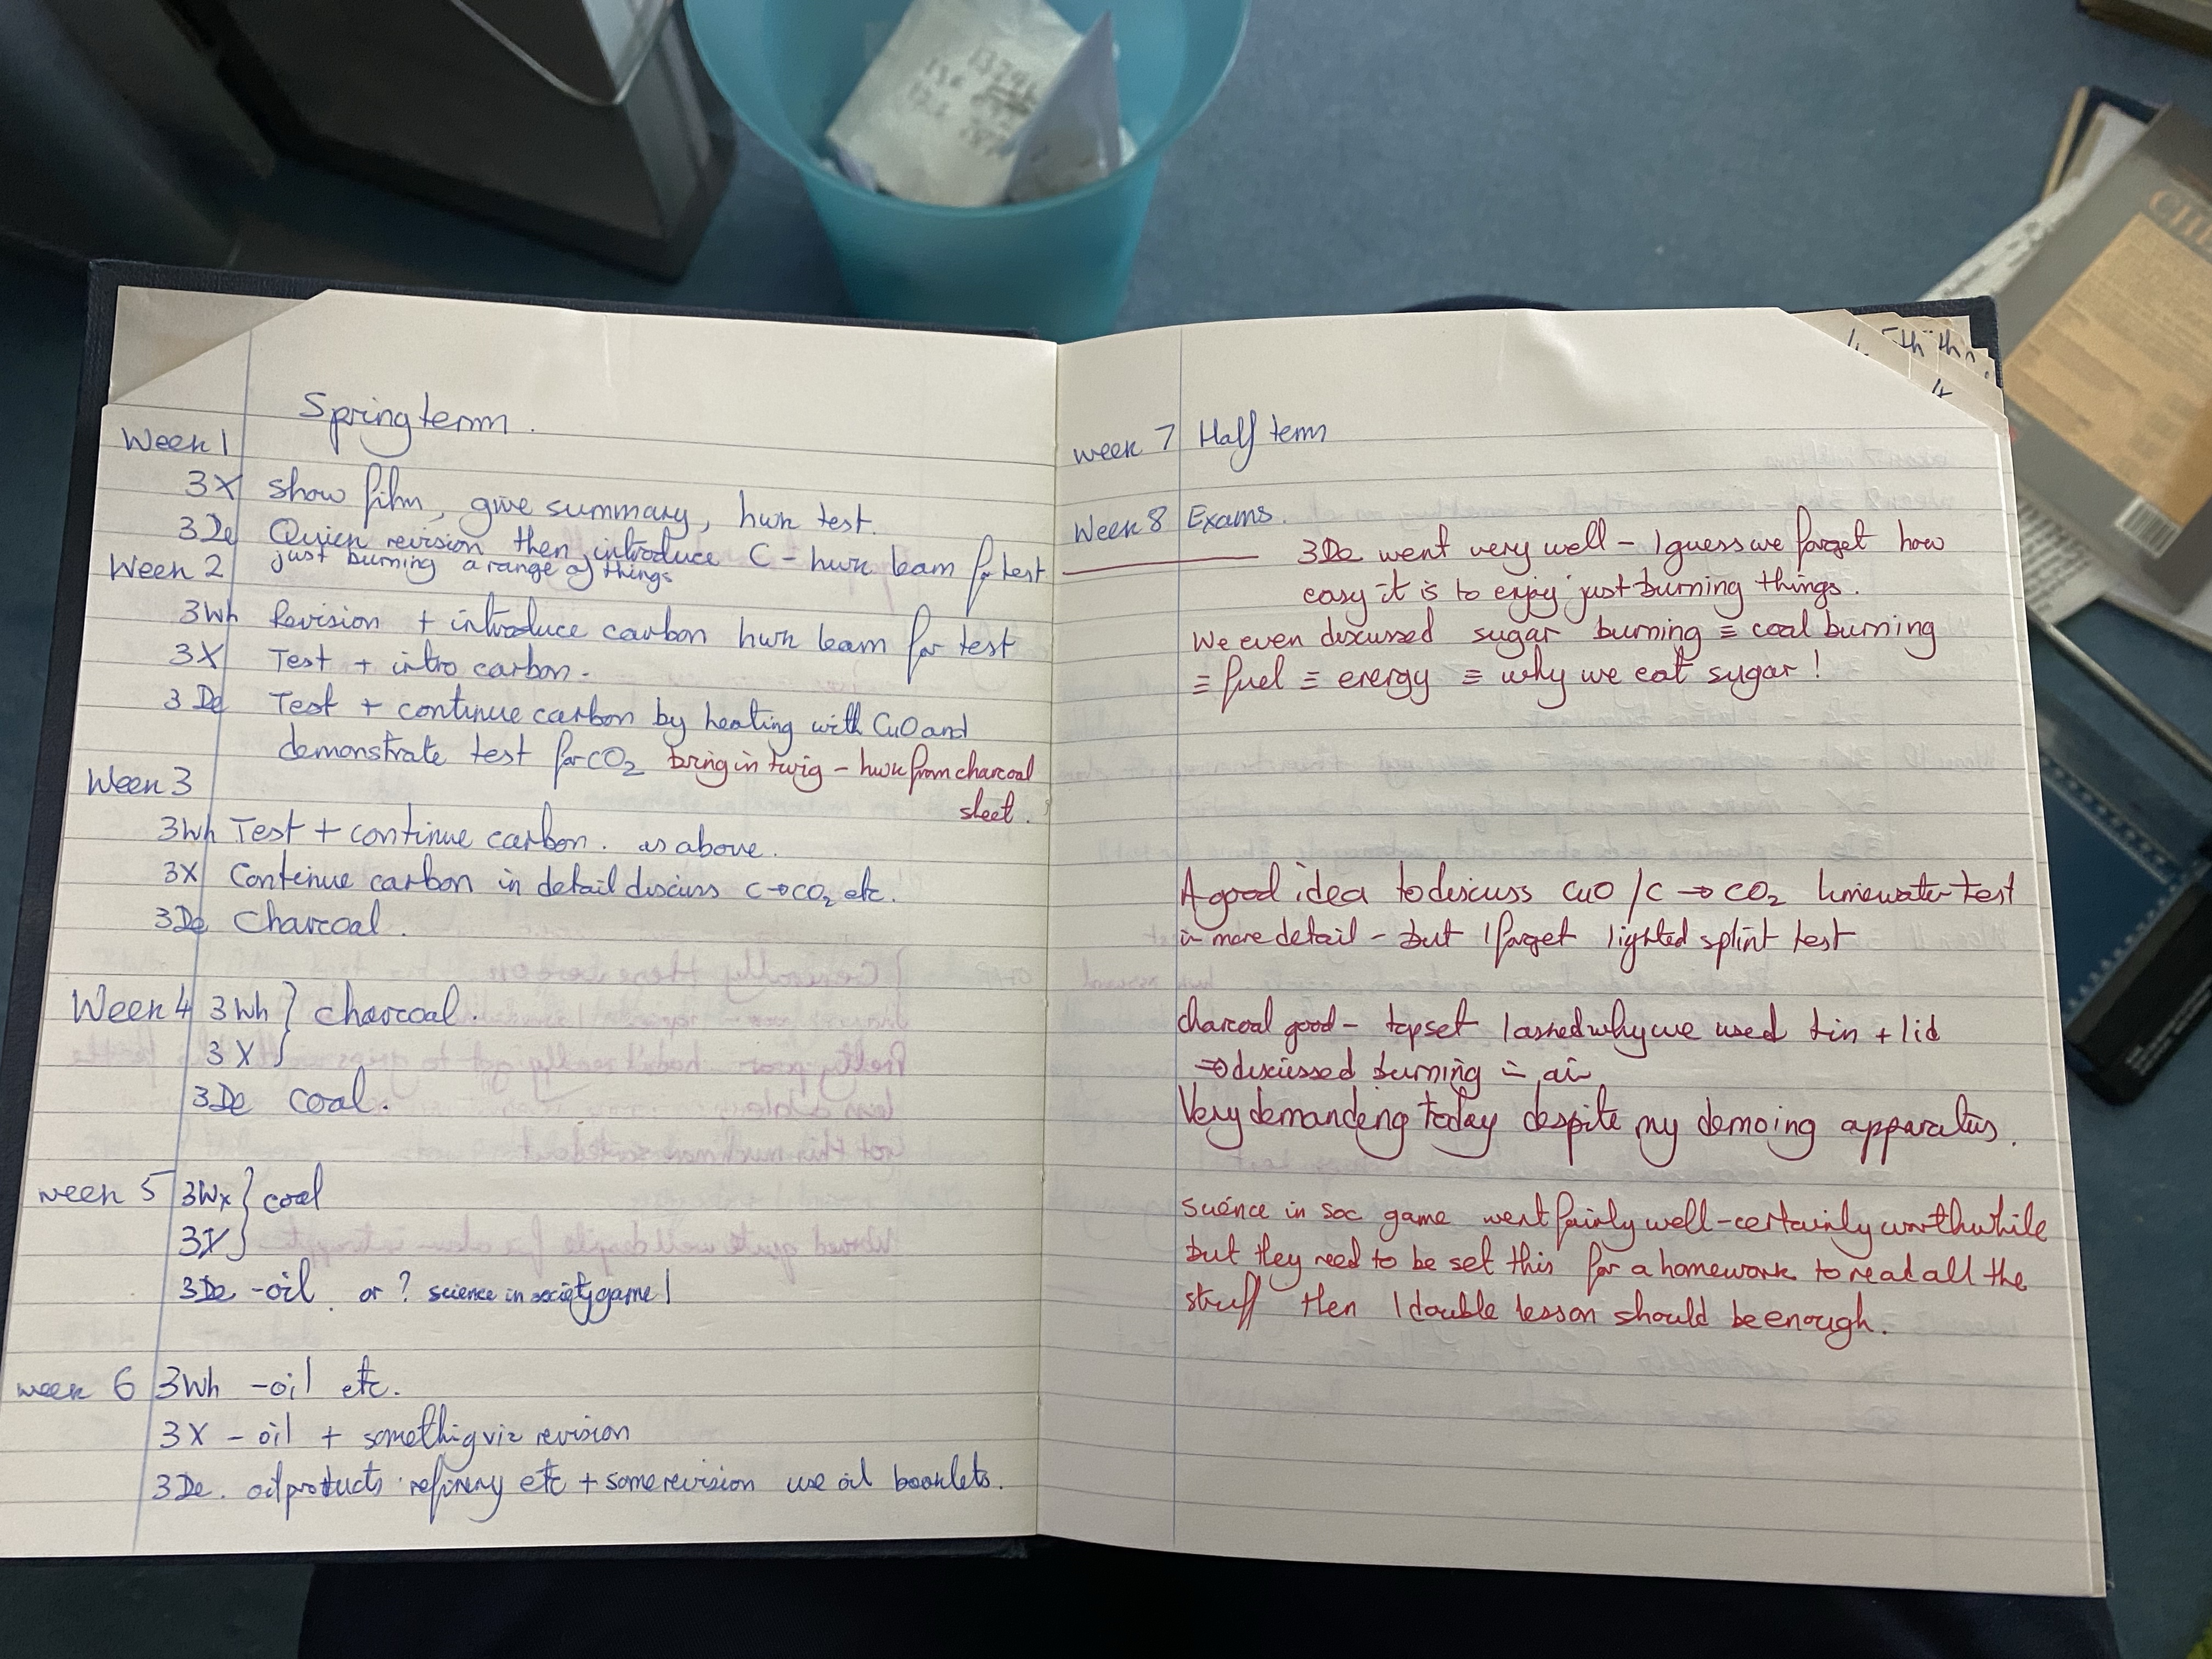 Spring term.
Week 1
3X show film, give summary, hwk test.
3De Quick revision then introduce C - hwk learn for test
just burning a range of things
Week 2
3Wh Revision + introduce carbon hwk learn for test
3X Test + intro carbon.
3De Test + continue carbon by heating with CuO and
demonstrate test for CO2 bring in twig - hwk from charcoal
sheet.
Week 3
3Wh Test + continue carbon. as above.
3X Continue carbon in detail discuss C→CO2 etc.
3De Charcoal.
Week 4 3Wh } charcoal.
3X
3De coal.
week 5 3Wx } coal
3X
3De - oil or ? science in society game!
week 6 3Wh - oil etc.
3X - oil + somethig viz revision
3De. oil products refinery etc + some revision use oil booklets.
week 7 Half term
Week 8 Exams.
3De went very well - I guess we forget how
easy it is to enjoy just burning things.
We even discussed sugar burning ≡ coal burning
≡ fuel ≡ energy ≡ why we eat sugar!
A good idea to discuss CuO/C → CO2 limewater test
in more detail - but I forget lighted splint test
charcoal good - top set I asked why we used tin + lid
→ discussed burning in air
Very demanding today despite my demoing apparatus.
science in soc game went fairly well - certainly worthwhile
but they need to be set this for a homework to read all the
stuff then 1 double lesson should be enough.